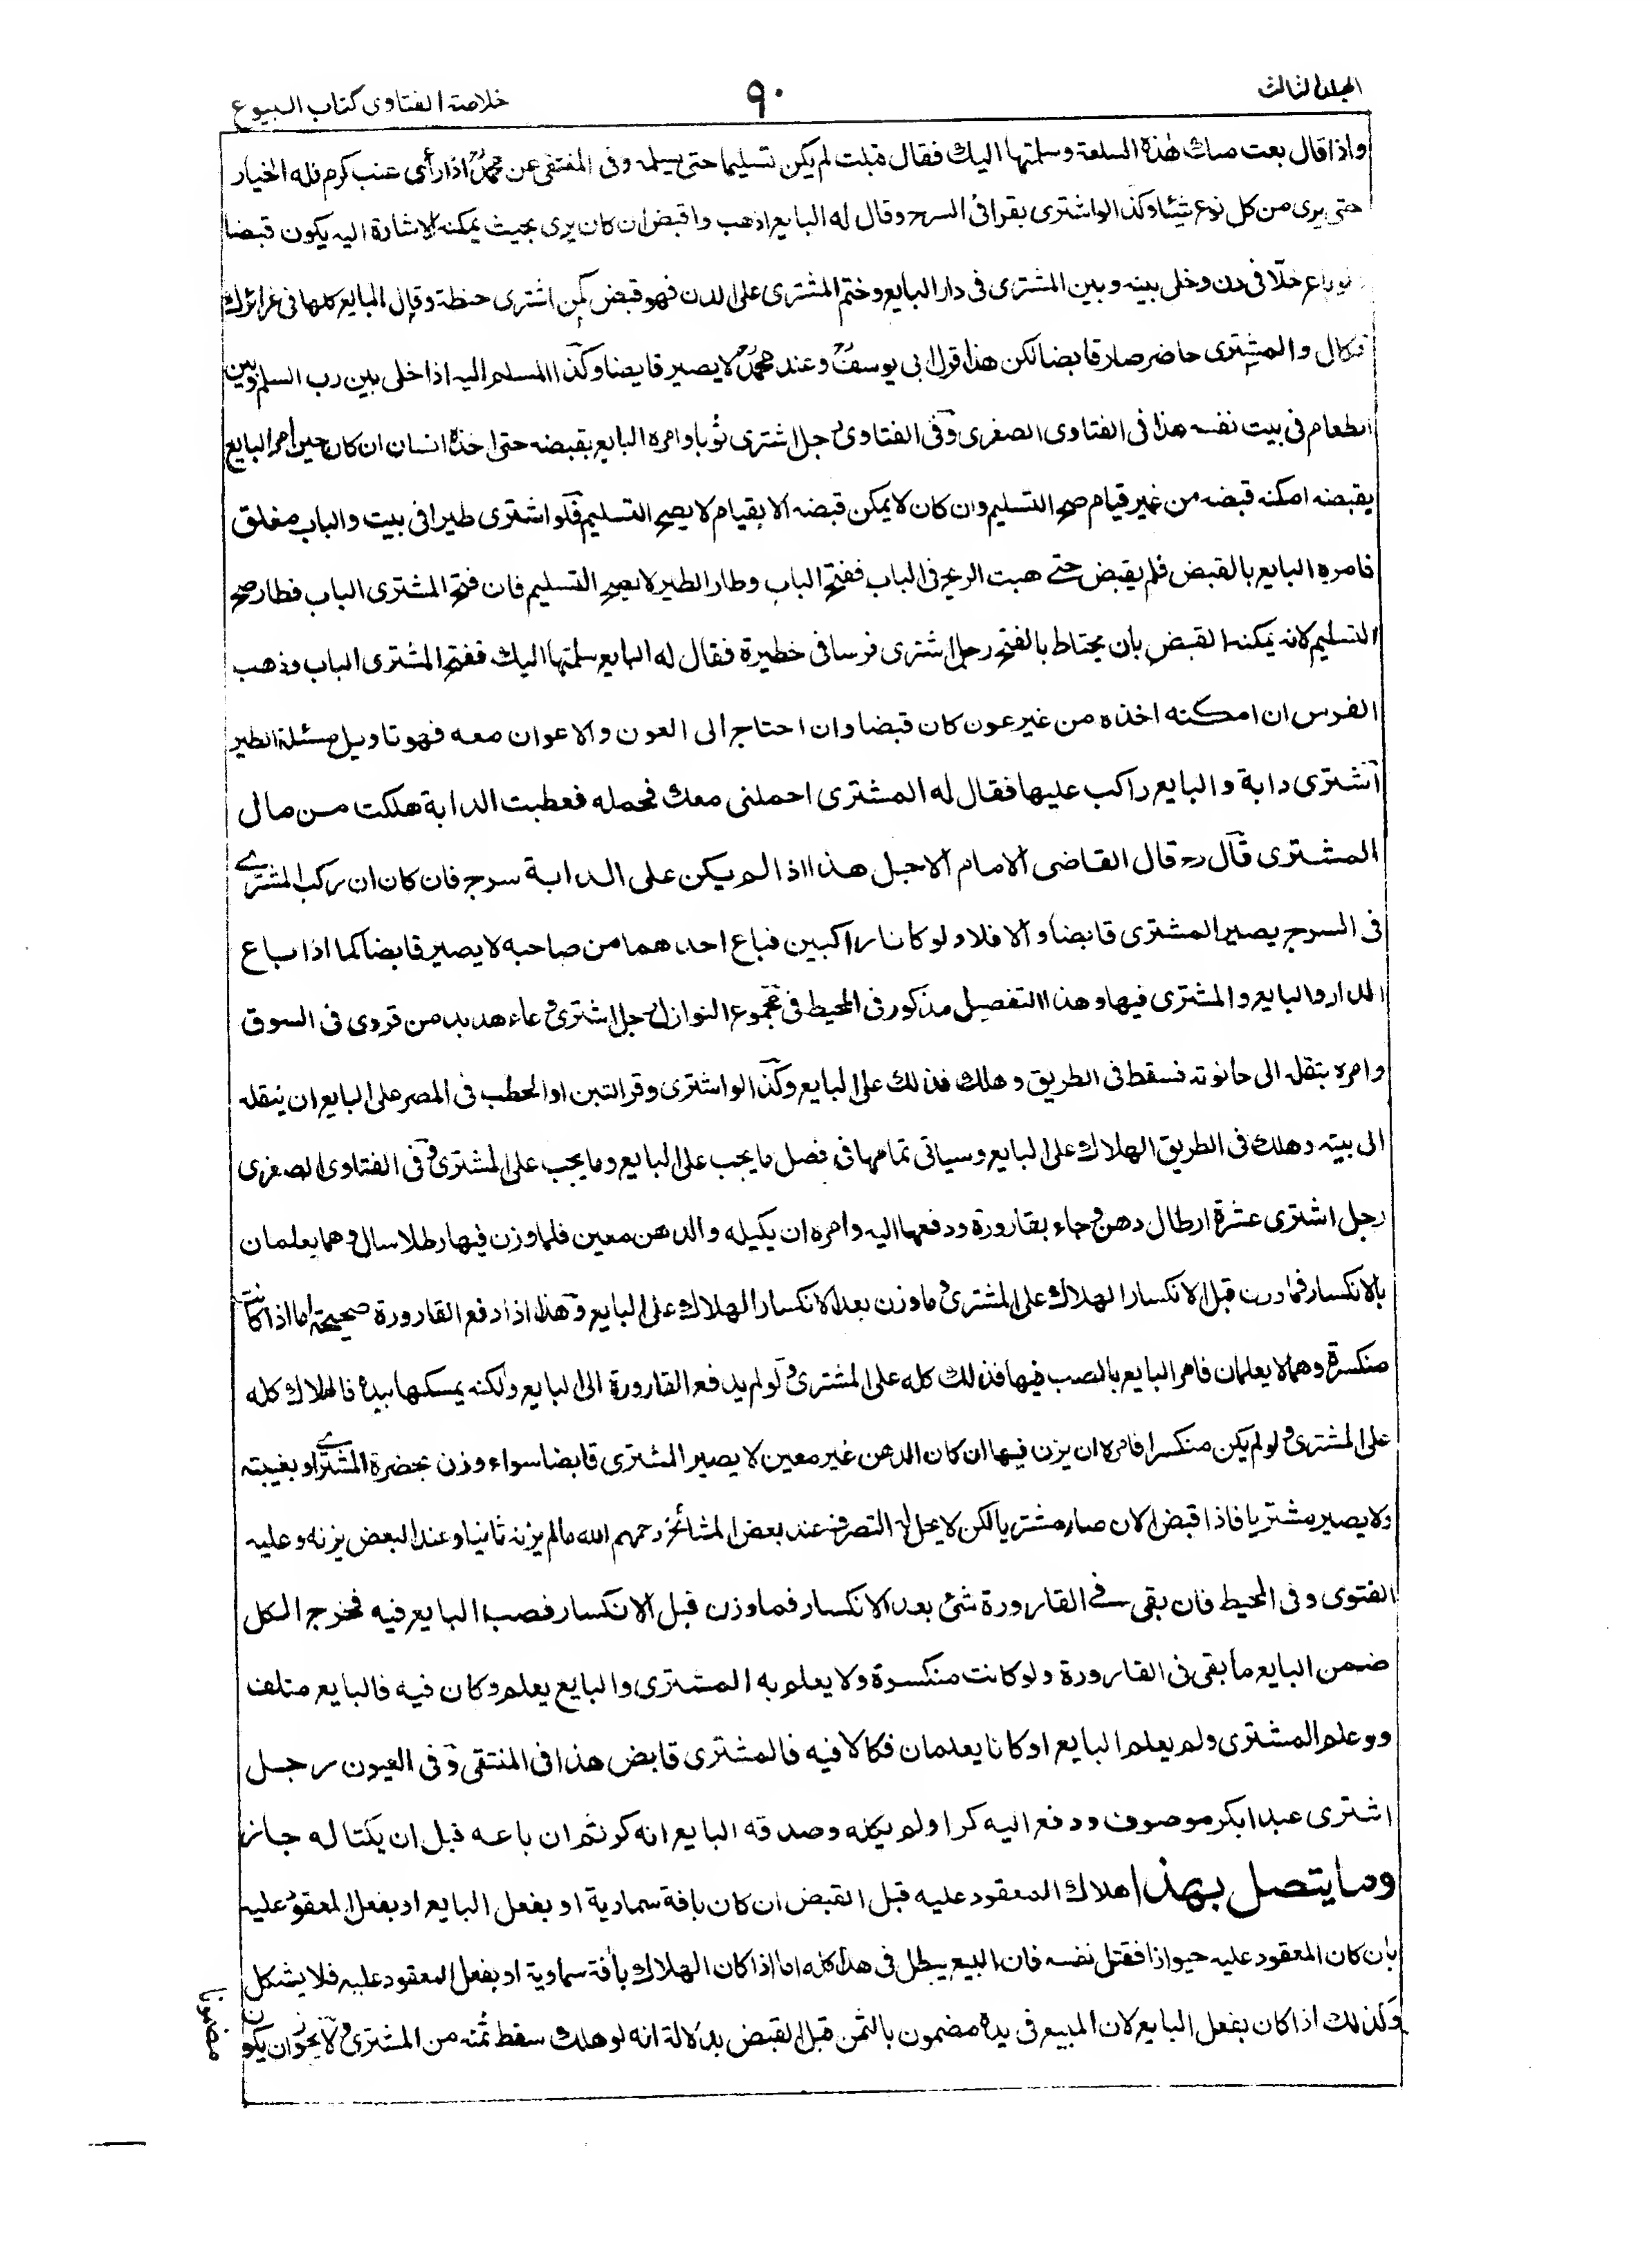 المجلد الثالث
٩٠
خلاصة الفتاوى كتاب البيوع
واذا قال بعت منك هذه السلعة وسلمتها اليك فقال قبلت لم يكن تسليما حتى يسلمه وفى المنتقى عن محمدؒ اذا رأى عنب كرم فله الخيار
حتى يرى من كل نوع شيئا وكذا لو اشترى بقرا فى السرح وقال له البايع اذهب واقبض ان كان يرى بحيث يمكنه الاشارة اليه يكون قبضا
ولو باع خلّا فى دن وخلى بينه وبين المشترى فى دار البايع وختم المشترى على الدن فهو قبض كمن اشترى حنطة وقال البايع كلها فى غرائرك
فكال والمشترى حاضر صار قابضا لكن هذا قول ابى يوسفؒ وعند محمدؒ لا يصير قابضا وكذا المسلم اليه اذا خلى بين رب السلم وبين
الطعام فى بيت نفسه هذا فى الفتاوى الصغرى وفى الفتاوى رجل اشترى ثوبا وامره البايع بقبضه حتى اخذه انسان ان كان حين امر البايع
يقبضه امكنه قبضه من غير قيام صح التسليم وان كان لا يمكن قبضه الا بقيام لا يصح التسليم فلو اشترى طيرا فى بيت والباب مغلق
فامره البايع بالقبض فلم يقبض حتى هبت الريح فى الباب ففتح الباب وطار الطير لا يصح التسليم فان فتح المشترى الباب فطار صح
التسليم لانه يمكنه القبض بان يحتاط بالفتح رجل اشترى فرسا فى حظيرة فقال له البايع سلمتها اليك ففتح المشترى الباب وذهب
الفرس ان امكنه اخذه من غير عون كان قبضا وان احتاج الى العون والاعوان معه فهو تاويل مسئلة الطير
اشترى دابة والبايع راكب عليها فقال له المشترى احملنى معك فحمله فعطبت الدابة هلكت من مال
المشترى قال رح قال القاضى الامام الاجل هذا اذا لم يكن على الدابة سرج فان كان ان ركب المشترى
فى السرج يصير المشترى قابضا والا فلا ولو كانا راكبين فباع احدهما من صاحبه لا يصير قابضا كما اذا باع
الدار والبايع والمشترى فيها وهذا التفصيل مذكور فى المحيط فى مجموع النوازل رجل اشترى وعاء هدبد من قروى فى السوق
وامره بنقله الى حانوته فسقط فى الطريق وهلك فذلك على البايع وكذا لو اشترى وقر التبن او الحطب فى المصر على البايع ان ينقله
الى بيته وهلك فى الطريق الهلاك على البايع وسياتى تمامها فى فصل ما يجب على البايع وما يجب على المشترى وفى الفتاوى الصغرى
رجل اشترى عشرة ارطال دهن وجاء بقارورة ودفعها اليه وامره ان يكيله والدهن معين فلما وزن فيها رطلا سال وهما يعلمان
بالانكسار فما وزن قبل الانكسار الهلاك على المشترى وما وزن بعد الانكسار الهلاك على البايع وهذا اذا دفع القارورة صحيحة اما اذا كانت
منكسرة وهما لا يعلمان فامر البايع بالصب فيها فذلك كله على المشترى ولو لم يدفع القارورة الى البايع ولكنه يمسكها بيده فالهلاك كله
على المشترى ولو لم يكن منكسرا فامره ان يزن فيها ان كان الدهن غير معين لا يصير المشترى قابضا سواء وزن بحضرة المشترى او بغيبته
ولا يصير مشتريا فاذا قبض الان صار مشتريا لكن لا يحل له التصرف عند بعض المشائخ رحمهم الله ما لم يزنه ثانيا وعند البعض يزنه وعليه
الفتوى وفى المحيط فان بقى فى القارورة شئ بعد الانكسار فما وزن قبل الانكسار فصب البايع فيه فخرج الكل
ضمن البايع ما بقى فى القارورة ولو كانت منكسرة ولا يعلم به المشترى والبايع يعلم وكان فيه فالبايع متلف
ووعلم المشترى ولم يعلم البايع او كانا يعلمان فكالا فيه فالمشترى قابض هذا فى المنتقى وفى العيون رجل
اشترى عبدا بكر موصوف ودفع اليه كرا ولم يكله وصدقه البايع انه كر ثم ان باعه قبل ان يكتاله جاز
وما يتصل بهذا هلاك المعقود عليه قبل القبض ان كان بافة سماوية او بفعل البايع او بفعل المعقود عليه
بان كان المعقود عليه حيوانا فقتل نفسه فان البيع يبطل فى هذا كله اما اذا كان الهلاك بأفة سماوية او بفعل المعقود عليه فلا يشكل
وكذلك اذا كان بفعل البايع لان المبيع فى يده مضمون بالثمن قبل القبض بدلالة انه لو هلك سقط ثمنه من المشترى ولا يجوز ان يكون
مضمونا